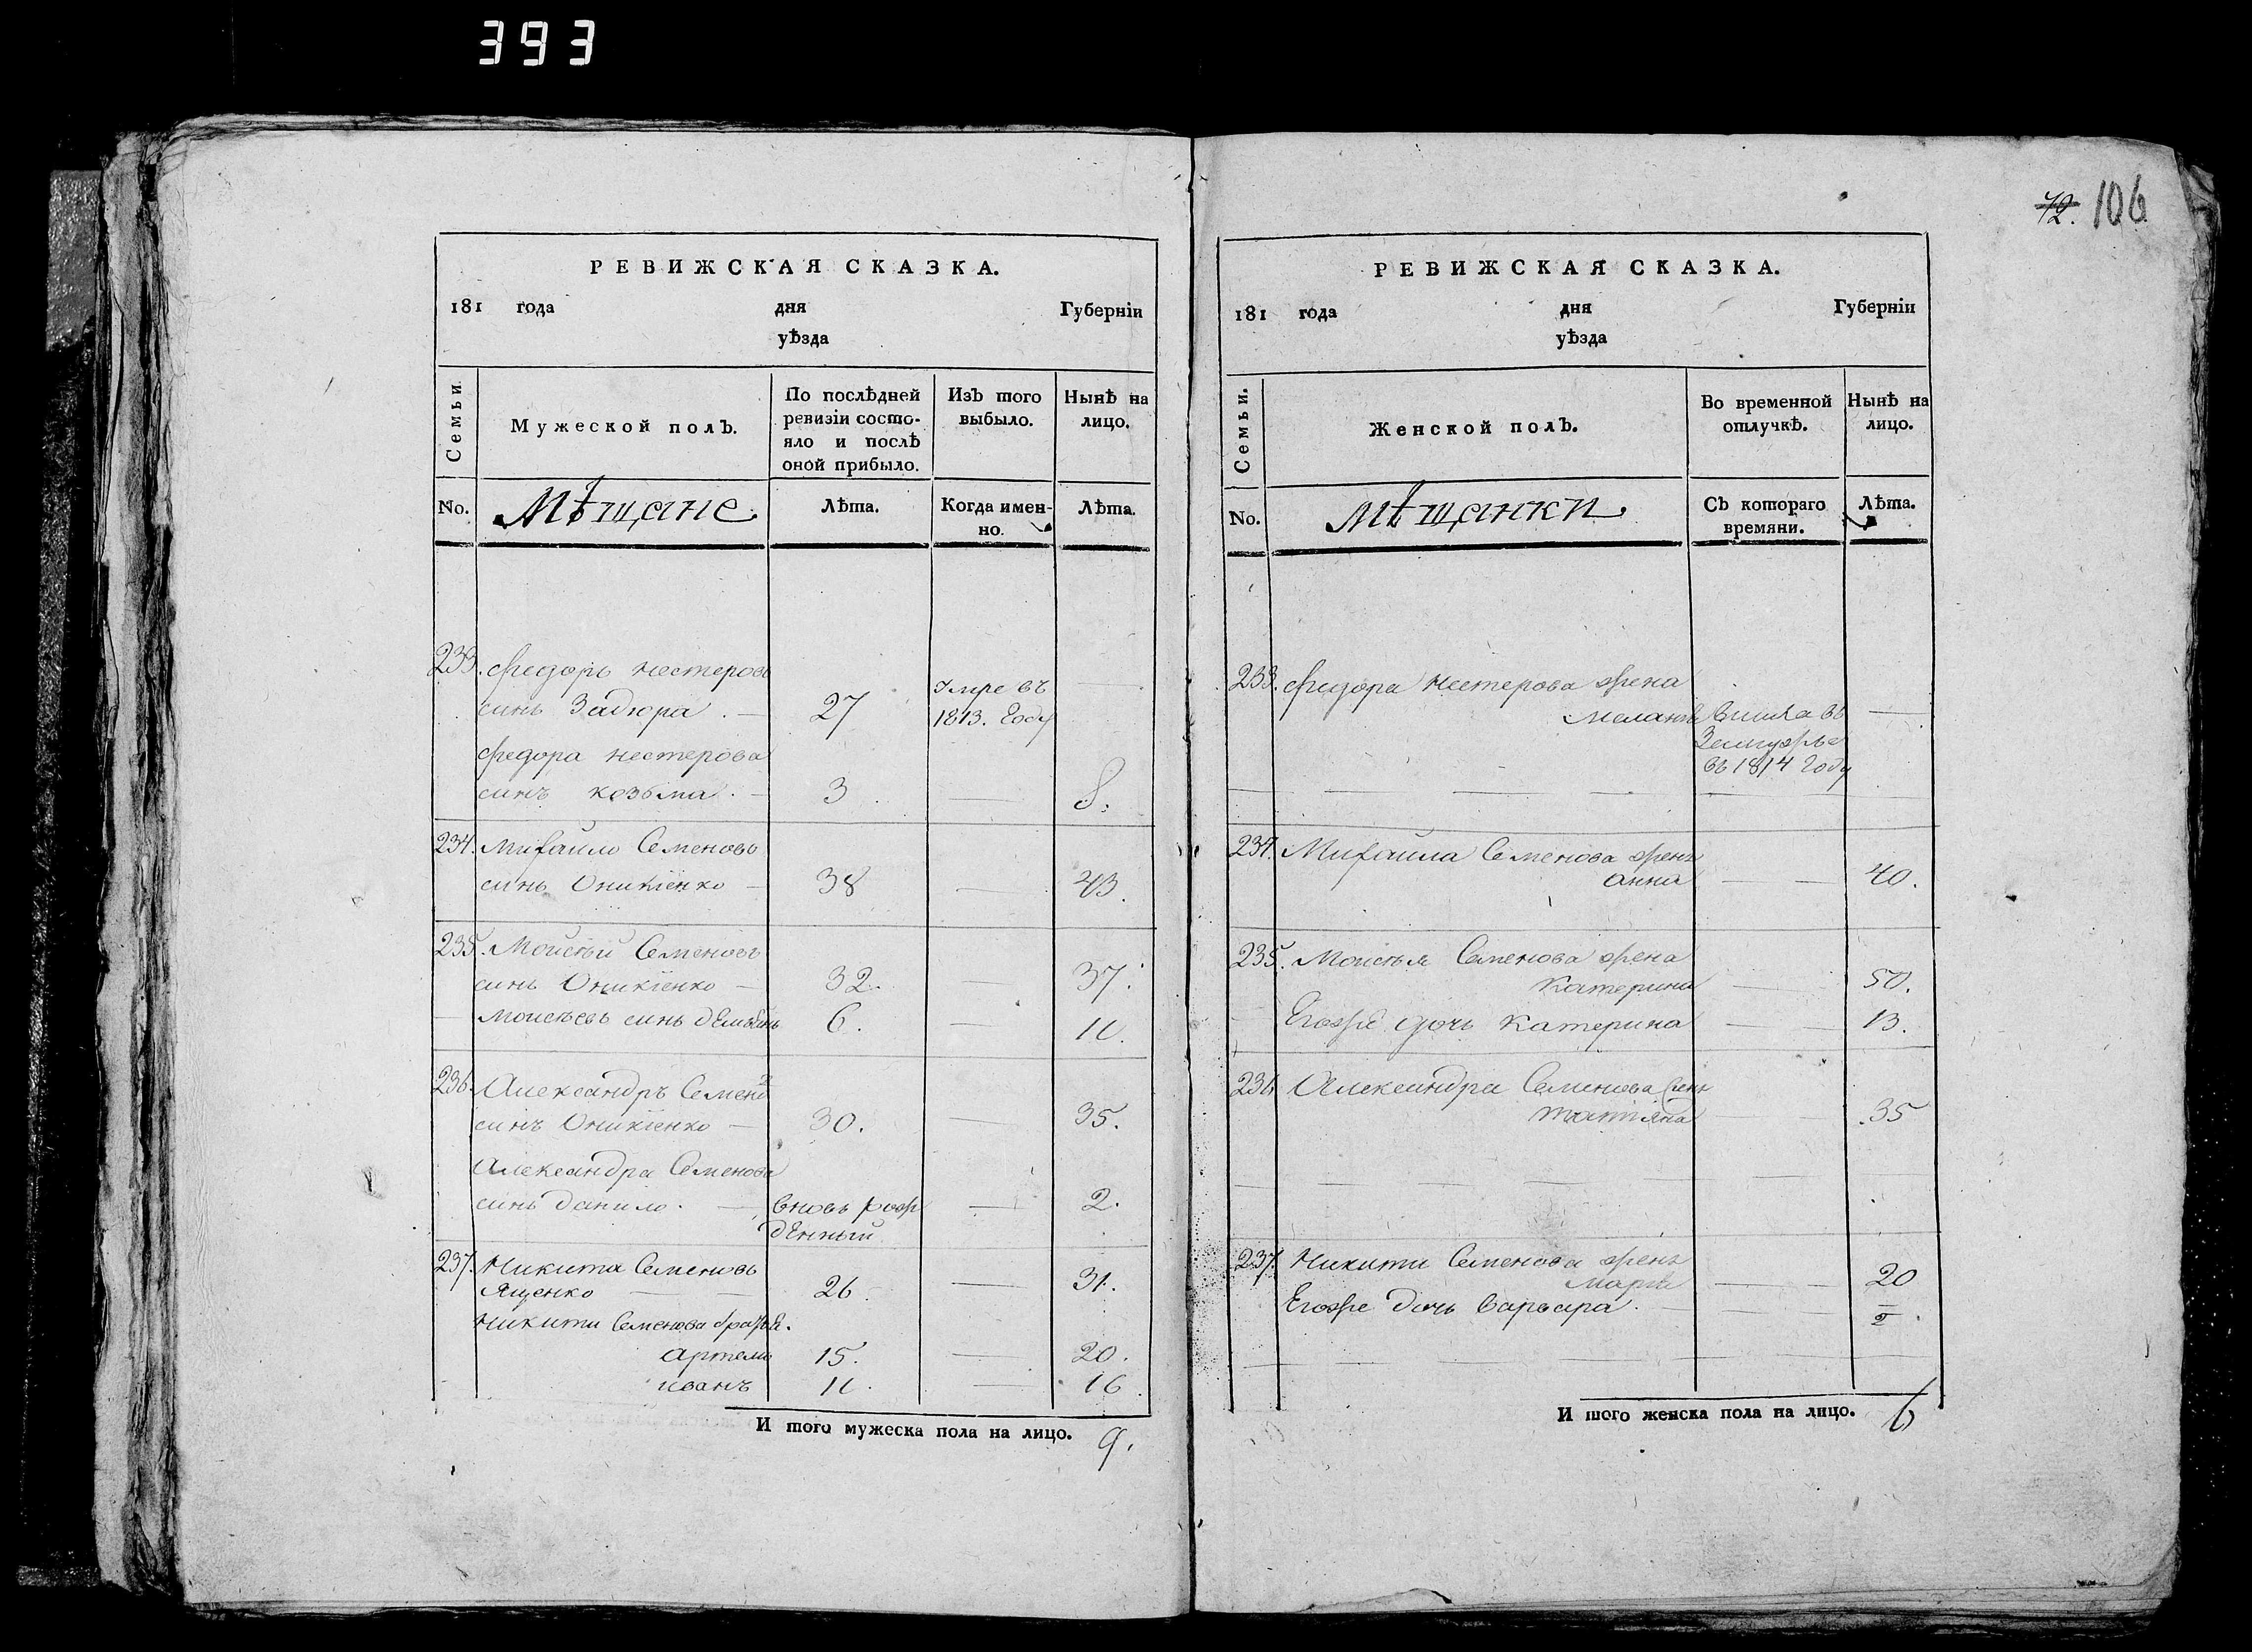 393
72. 106
РЕВИЖСКАЯ СКАЗКА.
181 года дня Губерніи
уѣзда
Семьи.
Мужеской полъ.
По послѣдней ревизіи состояло и послѣ оной прибыло.
Изъ того выбыло.
Нынѣ на лицо.
No.
Мѣщане
Лѣта.
Когда именно.
Лѣта.
233. Федоръ Нестеровъ
синъ Задюра 27 Умре въ 1813. Году
Федора Нестерова
синъ Козьма 3 8.
234. Михайло Семеновъ
синъ Оникіенко 38 43.
235. Мойсѣй Семеновъ
синъ Оникіенко 32. 37.
Моисѣевъ синъ 6. 11.
236. Александръ Семено
синъ Оникіенко 30. 35.
Александра Семенова
синъ Данило. вновь рож 2.
денный
237. Никита Семеновъ
Яценко 26. 31.
Никити Семенова братья.
Артемъ 15. 20.
иванъ 11. 16.
И того мужеска пола на лицо. 9.
РЕВИЖСКАЯ СКАЗКА.
181 года дня Губерніи
уѣзда
Семьи.
Женской полъ.
Во временной отлучкѣ.
Нынѣ на лицо.
No.
Мѣщанки
Съ котораго времяни.
Лѣта.
233. Федора Нестерова жена
вишла въ
Замужье
въ 1814 Году
234. Михайла Семенова жена
анна 40.
235. Моисѣя Семенова жена
Катерина 50.
Егоже дочь Катерина 13.
236 Александра Семенова жена
татіяна 35
237. Никити Семенова жена
Марія 20
Егоже дочь Варвара.
И того женска пола на лицо. 6